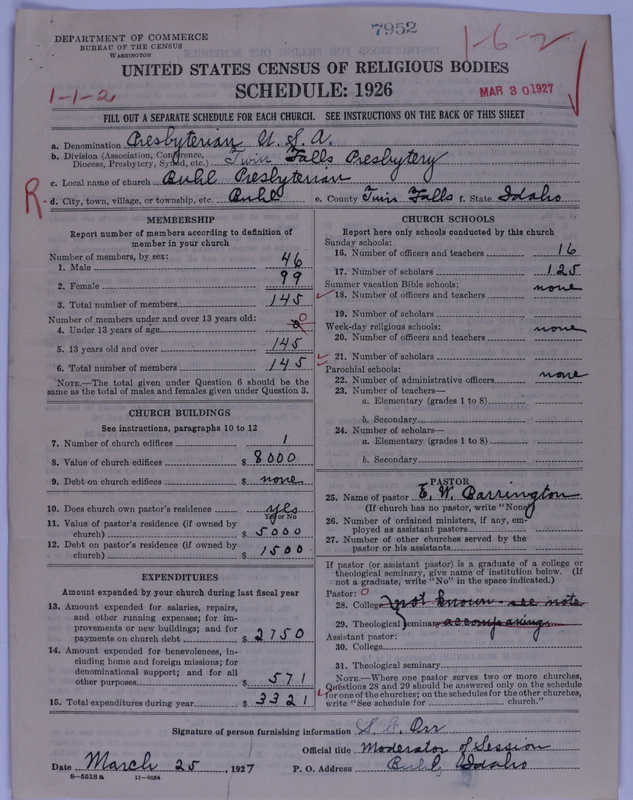 7952
1-6-2
DEPARTMENT OF COMMERCE
BUREAU OF THE CENSUS
WASHINGTON
UNITED STATES CENSUS OF RELIGIOUS BODIES
1-1-2
SCHEDULE: 1926
MAR 30 1927
FILL OUT A SEPARATE SCHEDULE FOR EACH CHURCH. SEE INSTRUCTIONS ON THE BACK OF THIS SHEET
a. Denomination Presbyterian U. S. A.
b. Division (Association, Conference, Diocese, Presbytery, Synod, etc.) Twin Falls Presbytery
c. Local name of church Buhl Presbyterian
R
d. City, town, village, or township, etc. Buhl e. County Twin Falls f. State Idaho
MEMBERSHIP
Report number of members according to definition of
member in your church
Number of members, by sex:
1. Male 46
2. Female 99
3. Total number of members 145
Number of members under and over 13 years old:
4. Under 13 years of age 0
5. 13 years old and over 145
6. Total number of members 145
NOTE.—The total given under Question 6 should be
same as the total of males and females given under Question 3.
CHURCH BUILDINGS
See instructions, paragraphs 10 to 12
7. Number of church edifices 1
8. Value of church edifices $ 8000
9. Debt on church edifices $ none
10. Does church own pastor's residence yes
Yes or No
11. Value of pastor's residence (if owned by
church) $ 5000
12. Debt on pastor's residence (if owned by
church) $ 1500
EXPENDITURES
Amount expended by your church during last fiscal year
13. Amount expended for salaries, repairs,
and other running expenses; for im-
provements or new buildings; and for
payments on church debt $ 2750
14. Amount expended for benevolences, in-
cluding home and foreign missions; for
denominational support; and for all
other purposes $ 571
15. Total expenditures during year $ 3321
CHURCH SCHOOLS
Report here only schools conducted by this church
Sunday schools:
16. Number of officers and teachers 16
17. Number of scholars 125
Summer vacation Bible schools:
18. Number of officers and teachers none
19. Number of scholars
Week-day religious schools:
20. Number of officers and teachers none
21. Number of scholars
Parochial schools:
22. Number of administrative officers none
23. Number of teachers—
a. Elementary (grades 1 to 8)
b. Secondary
24. Number of scholars—
a. Elementary (grades 1 to 8)
b. Secondary
PASTOR
25. Name of pastor E. W. Barrington
(If church has no pastor, write "None")
26. Number of ordained ministers, if any, em-
ployed as assistant pastors
27. Number of other churches served by the
pastor or his assistants
If pastor (or assistant pastor) is a graduate of a college or
theological seminary, give name of institution below. (If
not a graduate, write "No" in the space indicated.)
Pastor: 0
28. College not known - see note
29. Theological seminary accompanying
Assistant pastor:
30. College
31. Theological seminary
NOTE.—Where one pastor serves two or more churches,
Questions 28 and 29 should be answered only on the schedule
for one of the churches; on the schedules for the other churches,
write "See schedule for church."
Signature of person furnishing information Orr
Official title Moderator of Session
Date March 25, 1927 P. O. Address Buhl, Idaho
8-5518 a 11-9054